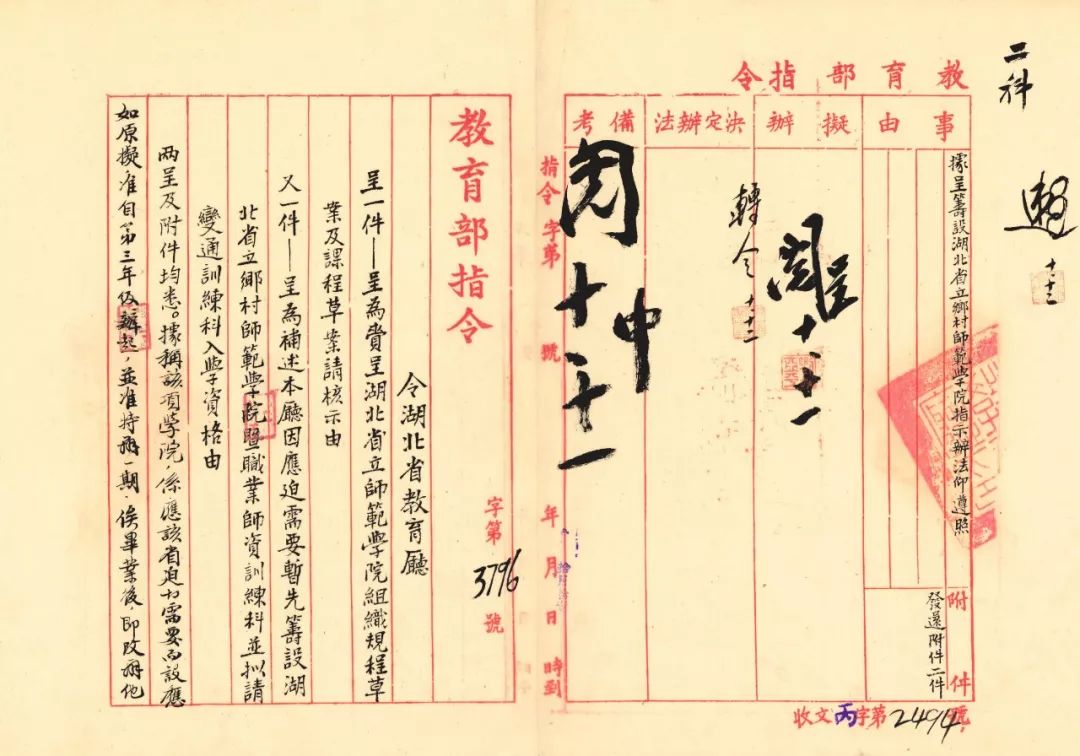 二科
十、十三
教育部指令
事由
據呈籌設湖北省立鄉村師範學院指示辦法仰遵照
附件
發還附件二件
擬辦
十、十一
轉令
十、十二
決定辦法
備考
中
十、十一
收文丙字第2494號
指令 字第 號
年 月 日 時到
教育部指令
字第3796號
令湖北省教育廳
呈一件——呈為賫呈湖北省立師範學院組織規程草
案及課程草案請核示由
又一件——呈為補述本廳因應迫需要暫先籌設湖
北省立鄉村師範學院暨職業師資訓練科並拟請
變通訓練科入學資格由
兩呈及附件均悉。據稱該項學院,係應該省迫切需要而設應
如原擬准自第三年級辦起,並准特辦一期,俟畢業後,即改辦他